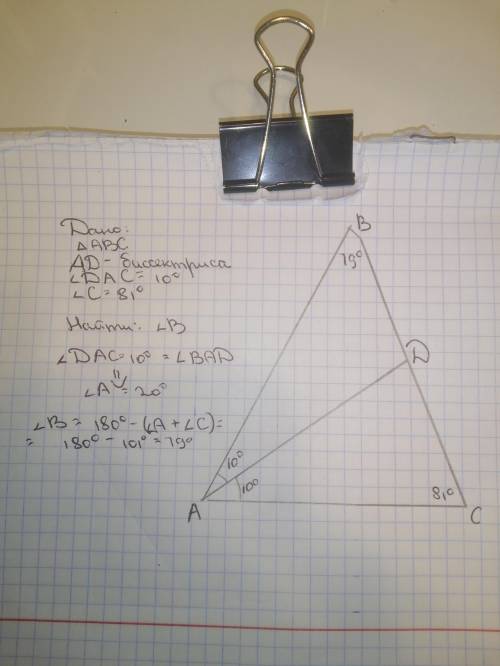 Дано:
△ABC
AD - биссектриса
∠DAC = 10°
∠C = 81°
Найти: ∠B
∠DAC = 10° = ∠BAD
⇓
∠A = 20°
∠B = 180° - (∠A + ∠C) =
= 180° - 101° = 79°
B
79°
D
10°
10°
81°
A
C